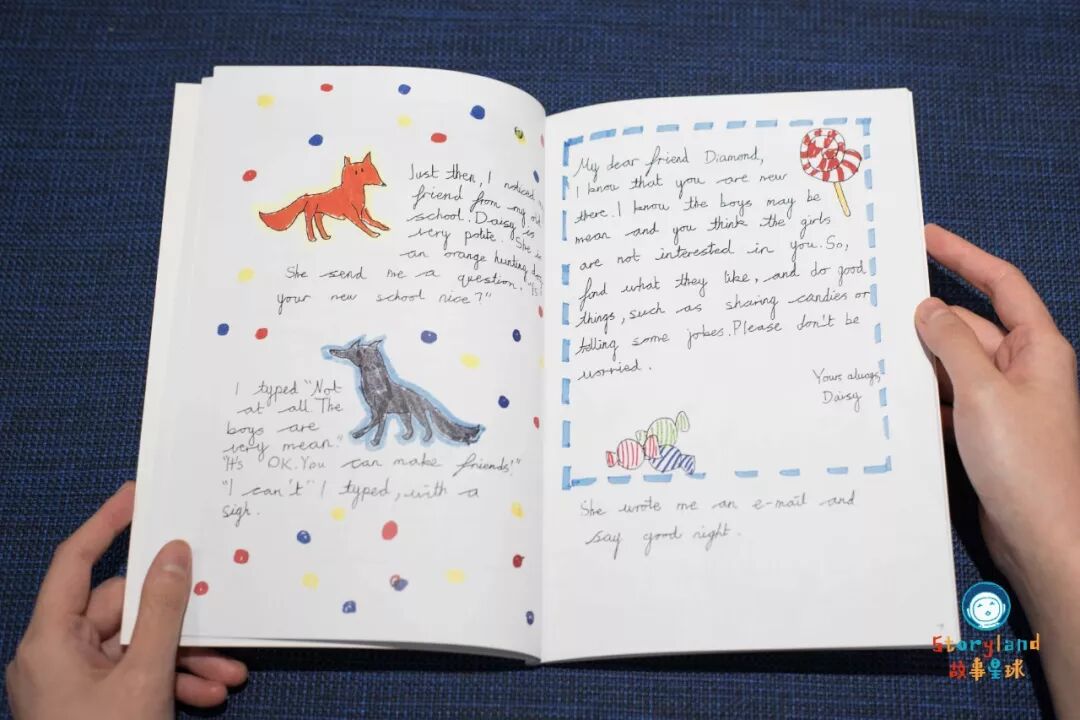 Just then, I noticed
friend from my old
school. Daisy is
very polite. She is
an orange hunting dog
She send me a question, "Is
your new school nice?"
I typed "Not
at all. The
boys are
very mean."
"It's OK. You can make friends!"
"I can't" I typed, with a
sigh.
My dear friend Diamond,
I know that you are new
there. I know the boys may be
mean and you think the girls
are not interested in you. So,
fond what they like, and do good
things, such as sharing candies or
telling some jokes. Please don't be
worried.
Yours always,
Daisy
She wrote me an e-mail and
say good night.
Storyland
故事星球